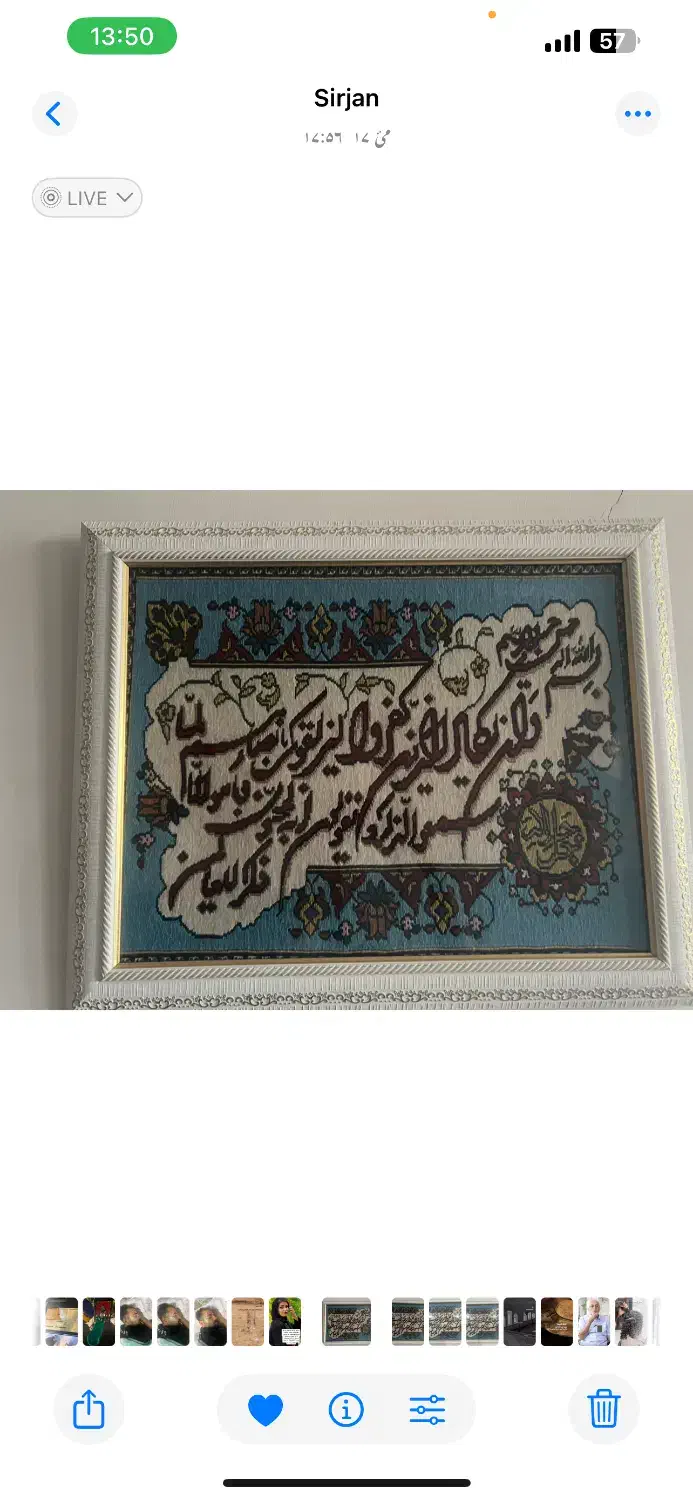 13:50
57
Sirjan
مئ ۱۷ ۱۷:۵۶
LIVE
بسم الله الرحمن الرحیم
وان یکاد الذین کفروا لیزلقونک بابصارهم لما
سمعوا الذکر و یقولون انه لمجنون و ما هو الا
ذکر للعالمین